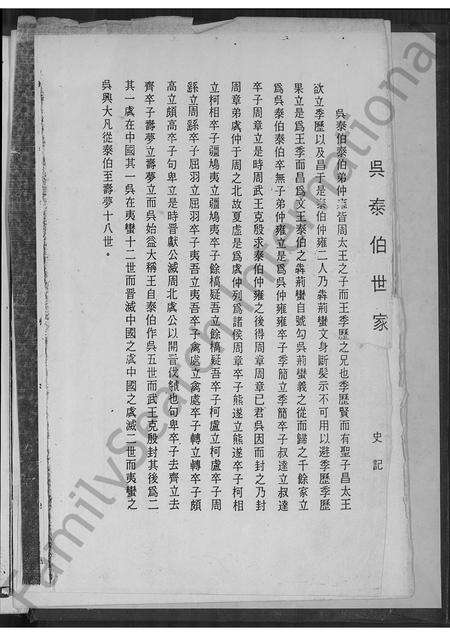 吳泰伯世家
史記
吳泰伯泰伯弟仲雍皆周太王之子而王季歷之兄也季歷賢而有聖子昌太王
欲立季歷以及昌于是泰伯仲雍二人乃犇荊蠻文身斷髮示不可用以避季歷季歷
果立是爲王季而昌爲文王泰伯之犇荊蠻自號勾吳荊蠻義之從而歸之千餘家立
爲吳泰伯泰伯卒無子弟仲雍立是爲吳仲雍雍卒子季簡立季簡卒子叔達立叔達
卒子周章立是時周武王克殷求泰伯仲雍之後得周章周章已君吳因而封之乃封
周章弟虞仲于周之北故夏虛是爲虞仲列爲諸侯周章卒子熊遂立熊遂卒子柯相
立柯相卒子彊鳩夷立彊鳩夷卒子餘橋疑吾立餘橋疑吾卒子柯盧立柯盧卒子周
繇立周繇卒子屈羽立屈羽卒子夷吾立夷吾卒子禽處立禽處卒子轉立轉卒子頗
高立頗高卒子句卑立是時晉獻公滅周北虞公以開晉伐虢也句卑卒子去齊立去
齊卒子壽夢立壽夢立而吳始益大稱王自泰伯作吳五世而武王克殷封其後爲二
其一虞在中國其一吳在夷蠻十二世而晉滅中國之虞中國之虞滅二世而夷蠻之
吳興大凡從泰伯至壽夢十八世。
FamilySearch International